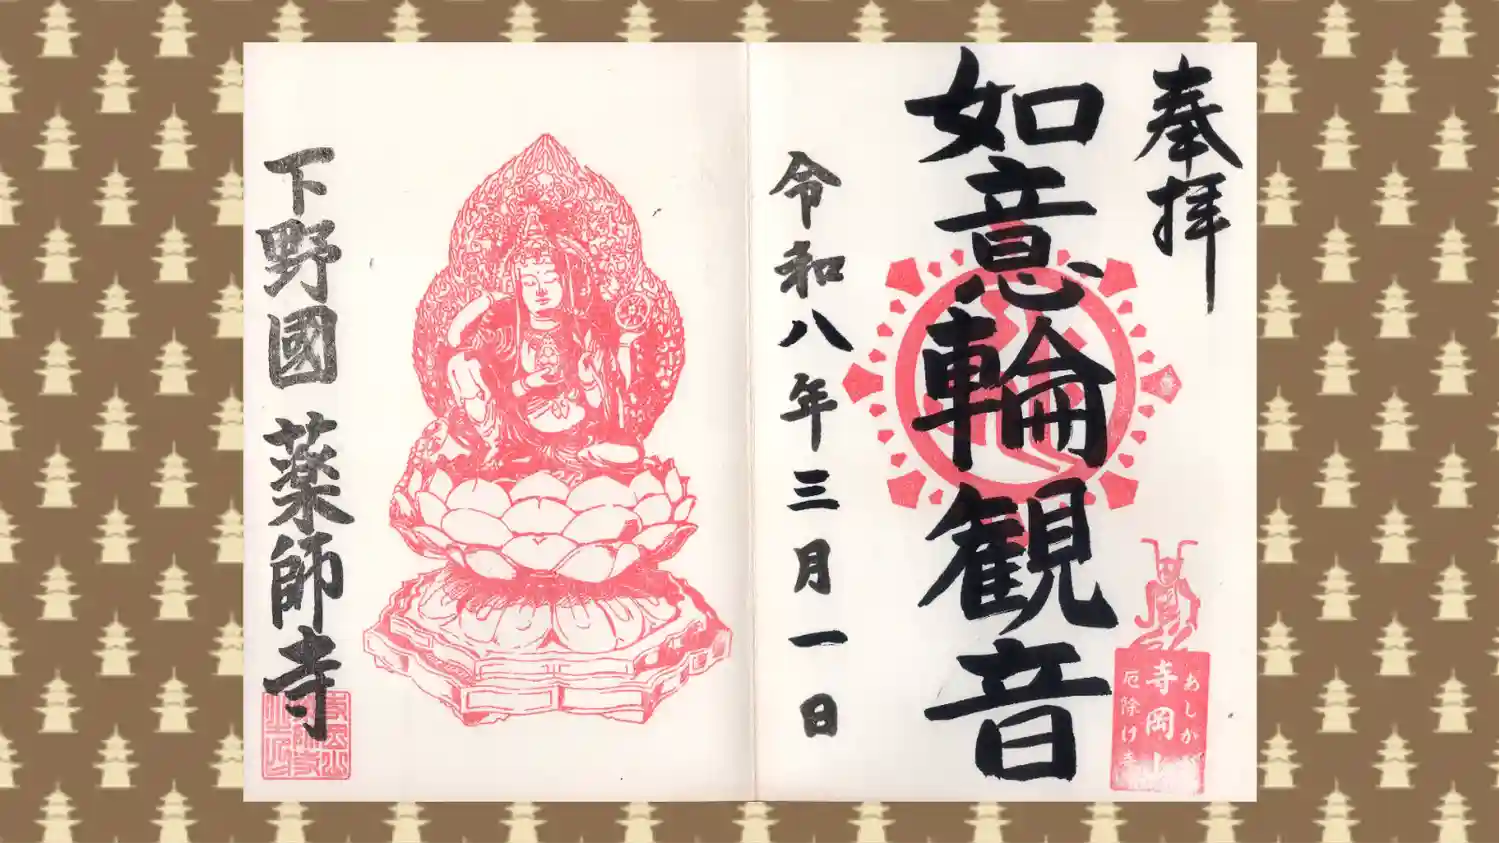 奉拝
如意輪観音
令和八年三月一日
あしかが
寺岡山
厄除け寺
下野國 薬師寺